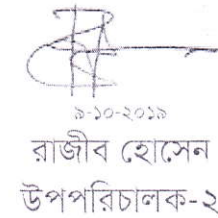 ৯-১০-২০১৯
রাজীব হোসেন
উপপরিচালক-২